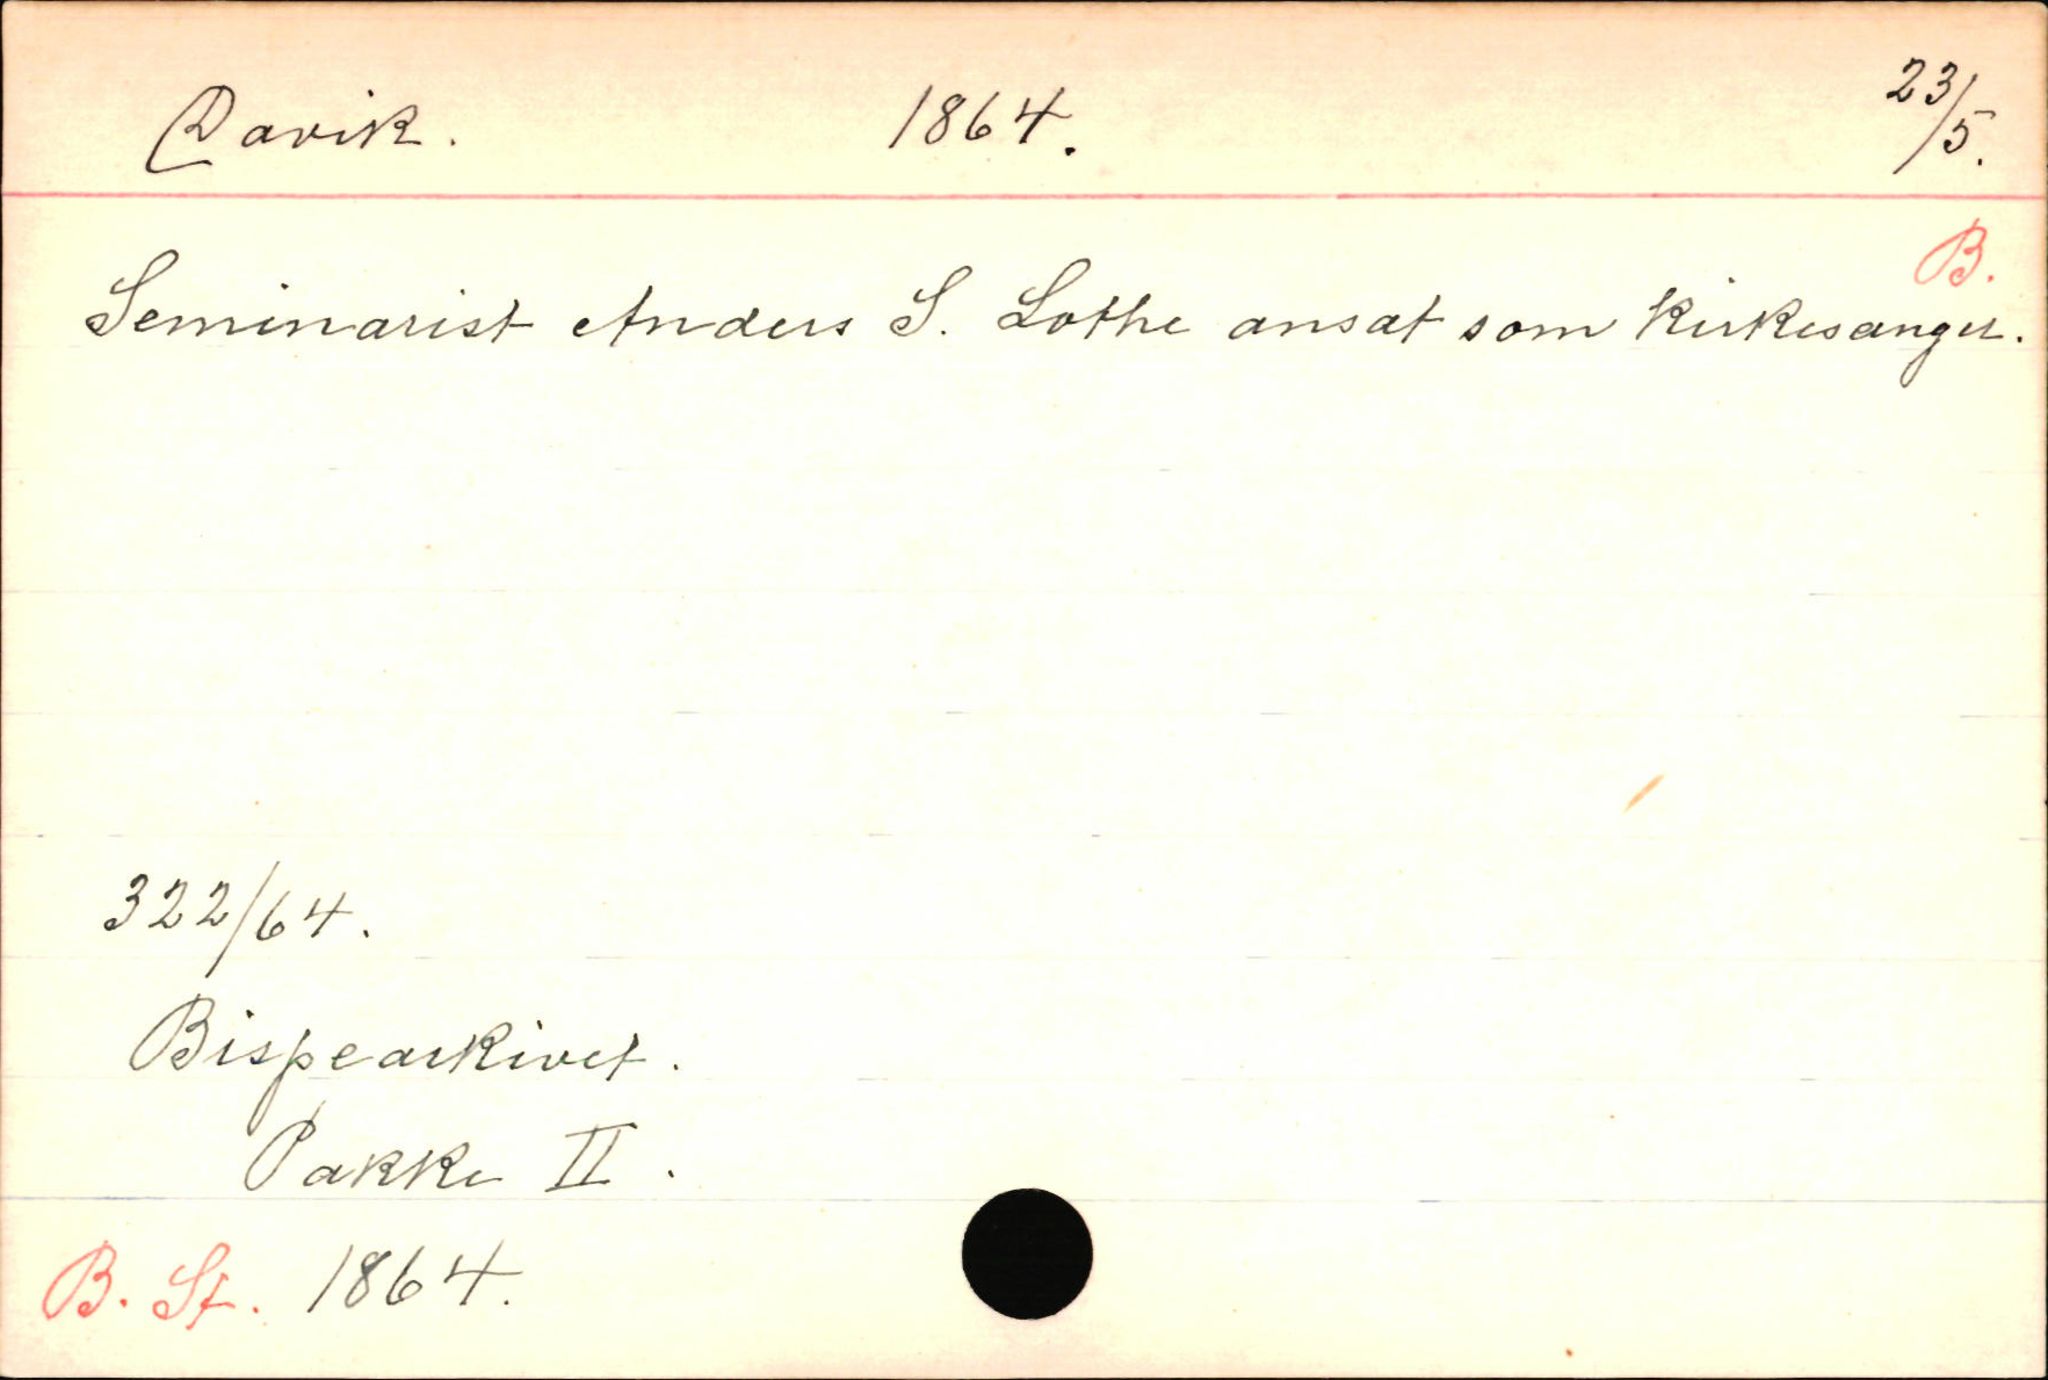 Davik. 1864. 23/5.
B.
Seminarist Anders S. Lothe ansat som kirkesanger.
322/64.
Bispearkivet.
Pakke II.
B. St. 1864.